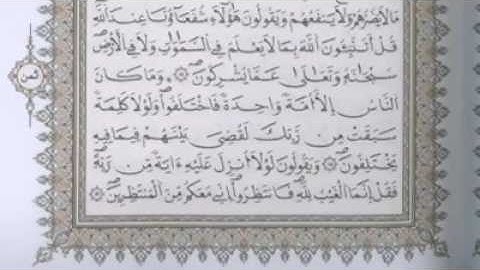 مَا لَا يَضُرُّهُمْ وَلَا يَنفَعُهُمْ وَيَقُولُونَ هَٰٓؤُلَآءِ شُفَعَٰٓؤُنَا عِندَ ٱللَّهِ
قُلْ أَتُنَبِّـُٔونَ ٱللَّهَ بِمَا لَا يَعْلَمُ فِى ٱلسَّمَٰوَٰتِ وَلَا فِى ٱلْأَرْضِ
سُبْحَٰنَهُۥ وَتَعَٰلَىٰ عَمَّا يُشْرِكُونَ وَمَا كَانَ
ٱلنَّاسُ إِلَّآ أُمَّةً وَٰحِدَةً فَٱخْتَلَفُوا۟ وَلَوْلَا كَلِمَةٌ
سَبَقَتْ مِن رَّبِّكَ لَقُضِىَ بَيْنَهُمْ فِيمَا فِيهِ
يَخْتَلِفُونَ وَيَقُولُونَ لَوْلَآ أُنزِلَ عَلَيْهِ ءَايَةٌ مِّن رَّبِّهِۦ
فَقُلْ إِنَّمَا ٱلْغَيْبُ لِلَّهِ فَٱنتَظِرُوٓا۟ إِنِّى مَعَكُم مِّنَ ٱلْمُنتَظِرِينَ